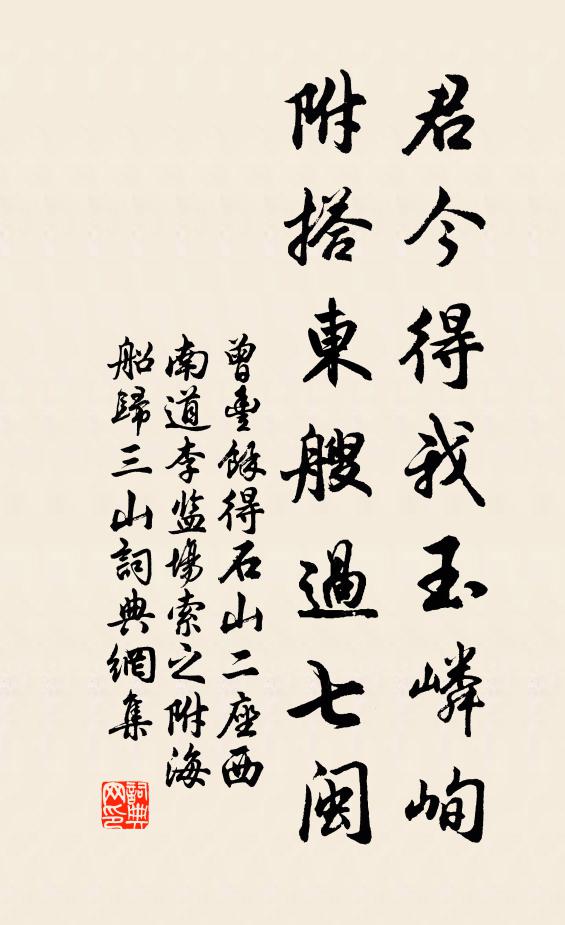 君今得我玉嶙峋
附搭東艘過七閩
曾豐餘得石山二座西
南道李监場索之附海
船歸三山詞典網集
詞典网印